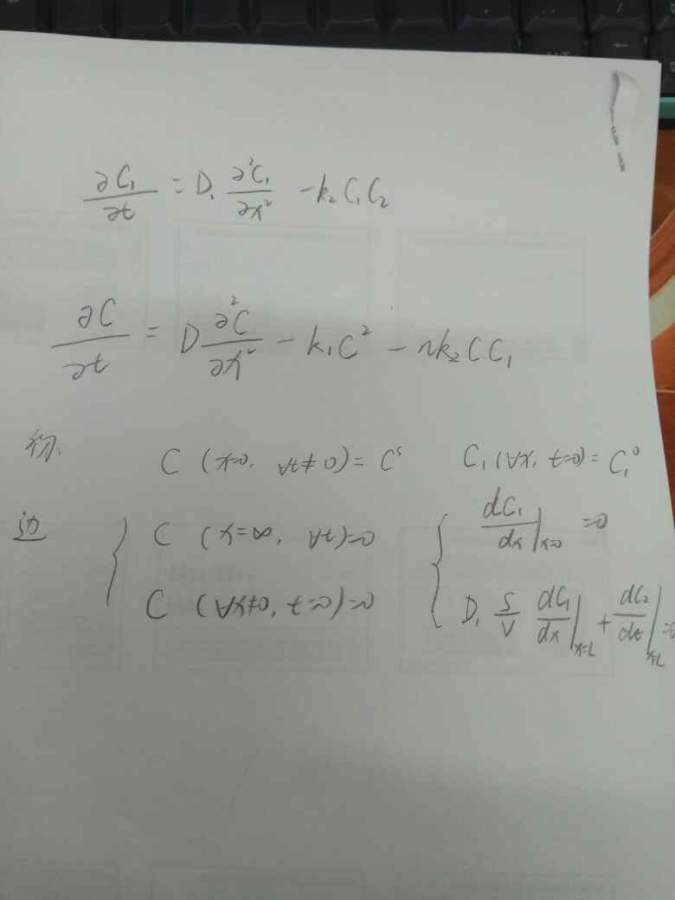 ∂C₁/∂t = D₁ ∂²C₁/∂x² - k₂C₁C₂
∂C/∂t = D ∂²C/∂x² - k₁C² - nk₂CC₁
初. C (x=0, ∀t≠0) = Cˢ C₁(∀x, t=0) = C₁⁰
边 { C (x=∞, ∀t)=0 { dC₁/dx |x=0 =0
C (∀x≠0, t=0)=0 D₁ S/V dC₁/dx |x=L + dC₂/dt |x=L =0